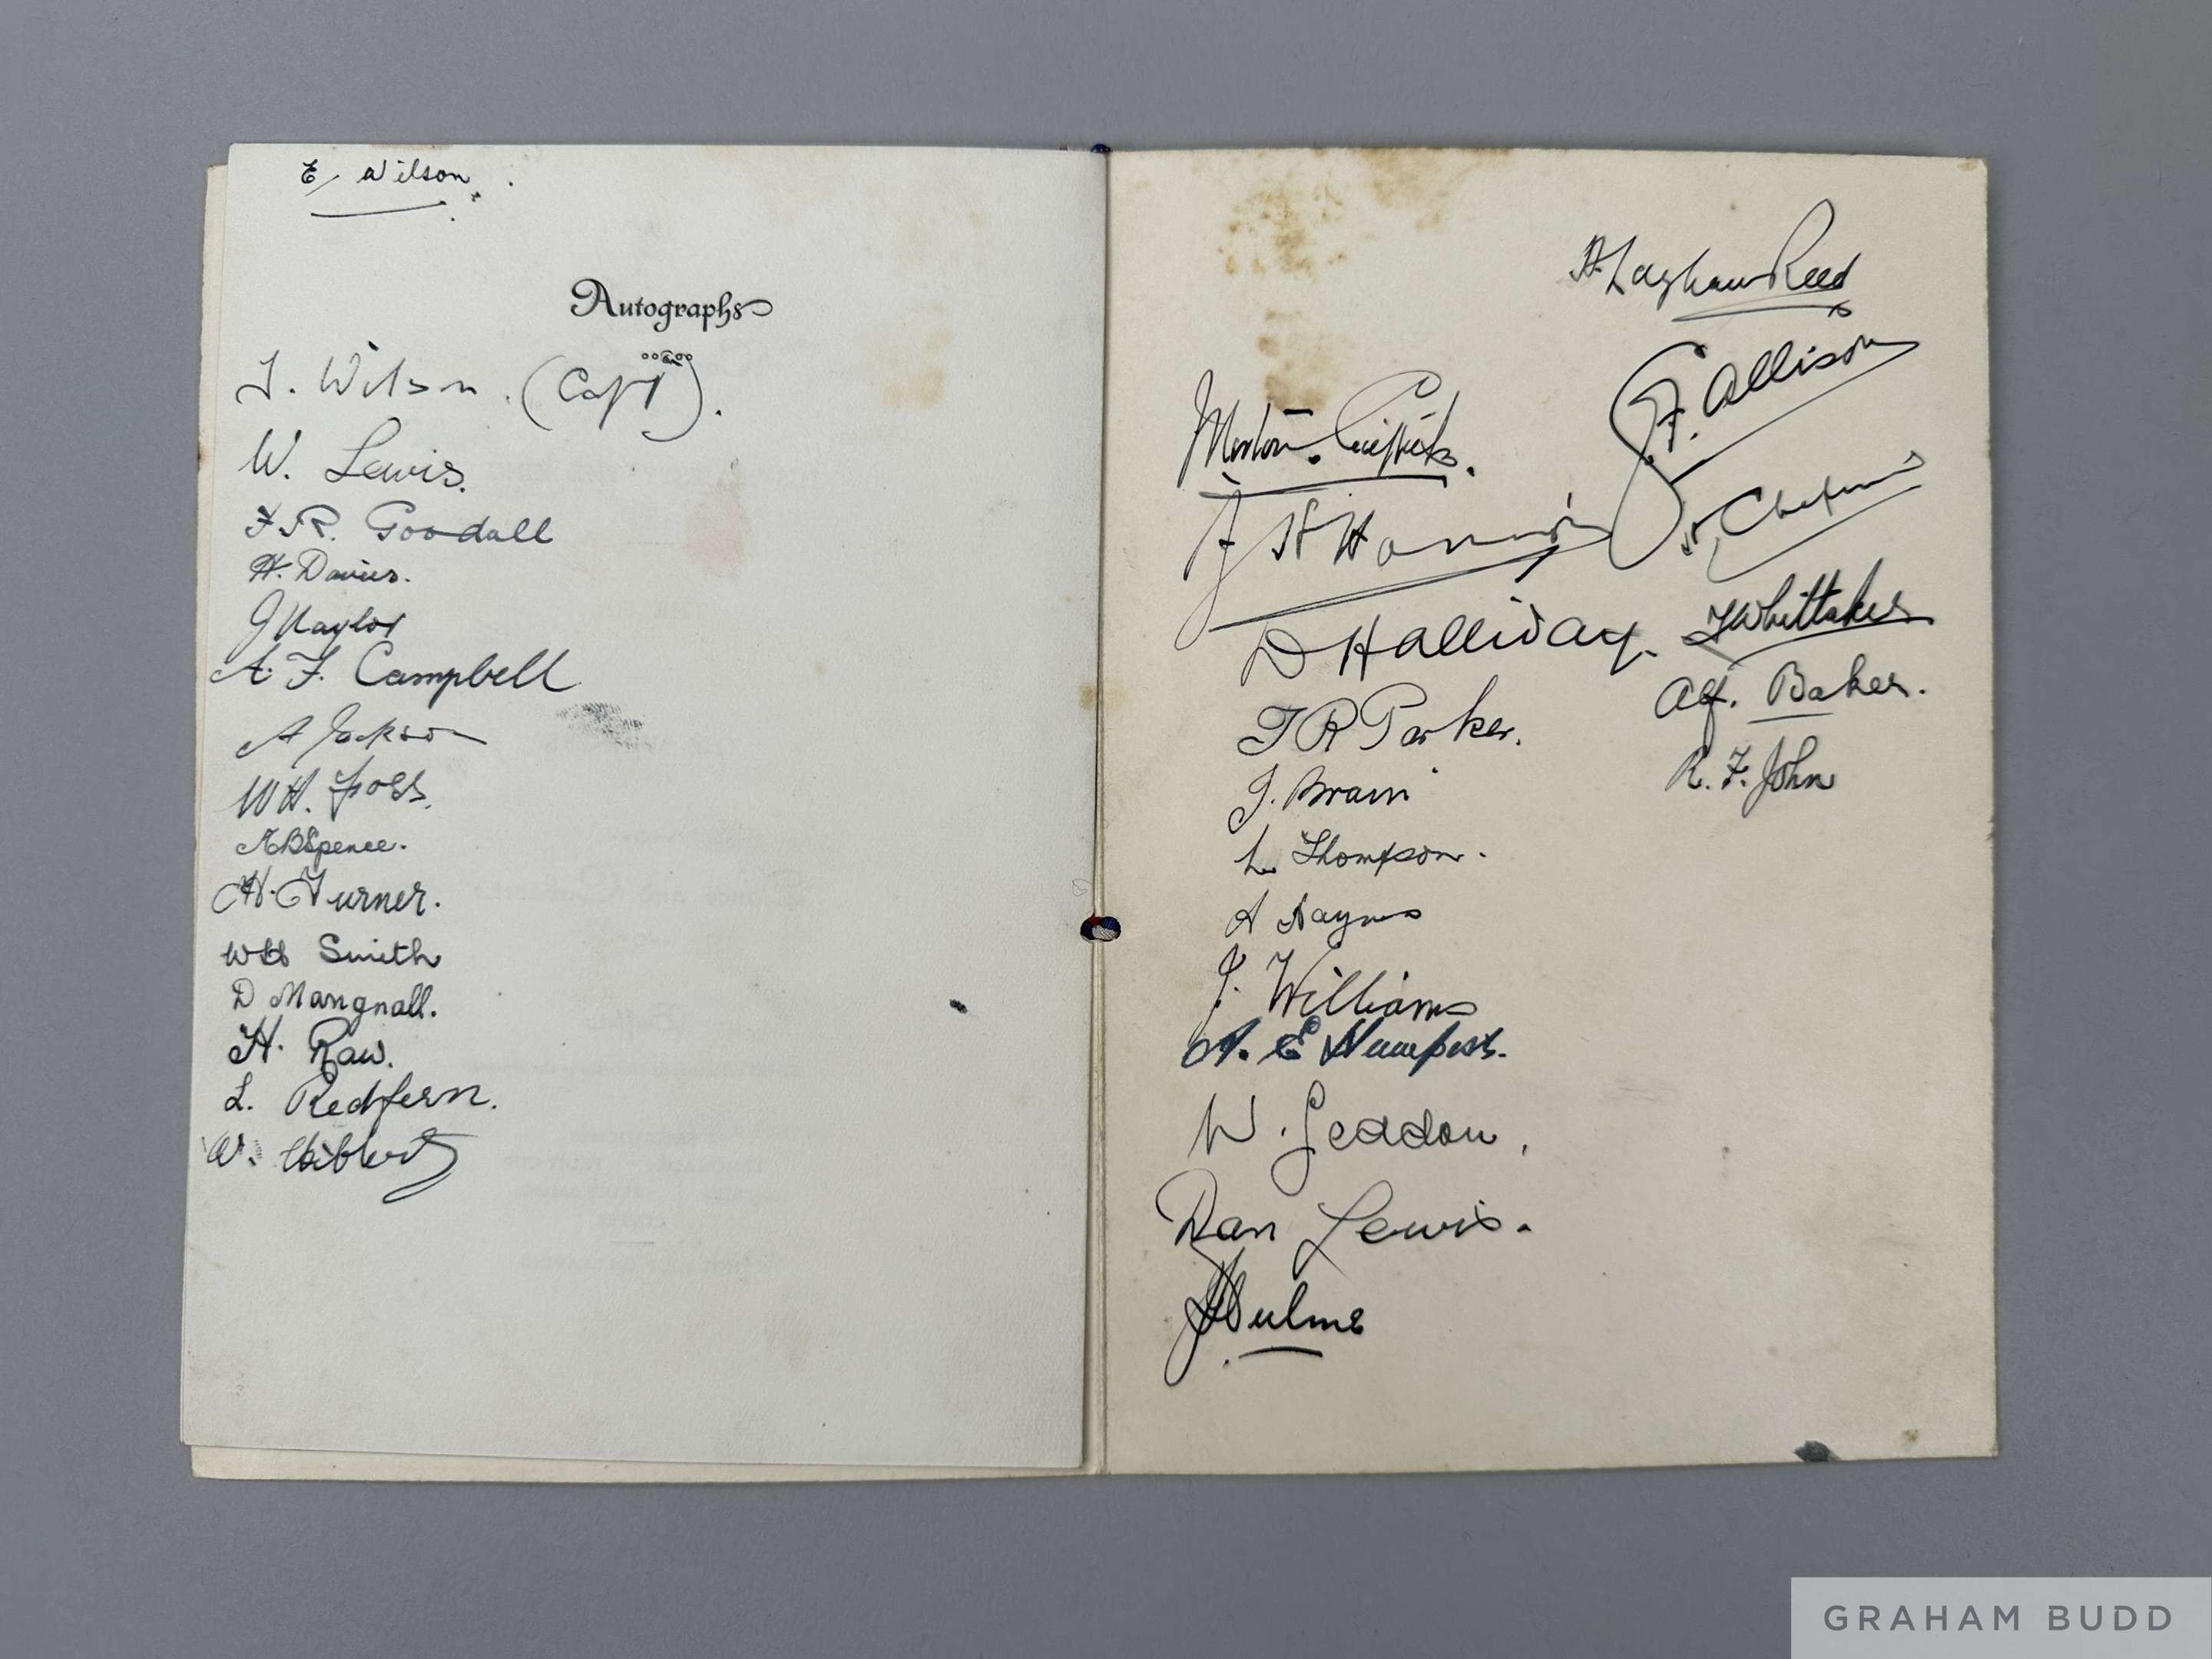 E. Wilson.
Autographs
T. Wilson. (Capt).
W. Lewis.
F. R. Goodall
H. Davies.
J Naylor
A. F. Campbell
A Jackson
W H.
A B Spence.
H. Turner.
W H Smith
D Mangnall.
H. Raw.
L. Redfern.
W.
Reed
G. F. Allison
D Halliday.
J Whittaker
Alf. Baker.
T R Parker.
R. F. John
J. Brain
L. Thompson.
A Haynes
J. Williams
A. E
W. Seddon.
Dan Lewis.
J Hulme
GRAHAM BUDD